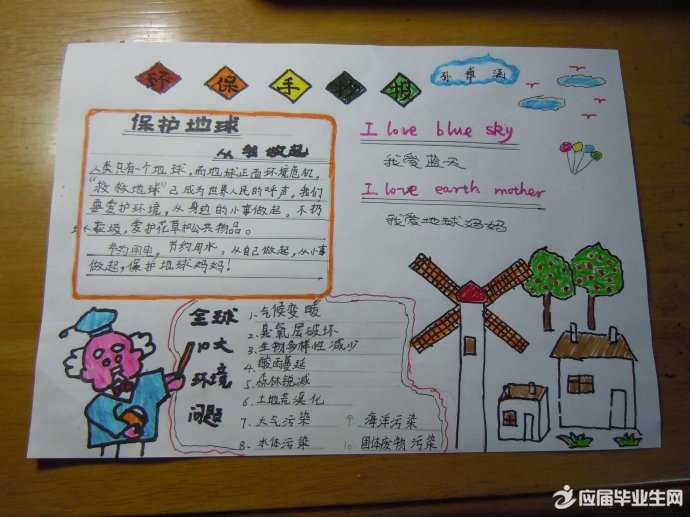 环 保 手 抄 报
保护地球
从我做起
人类只有一个地球，而地球正面环境危机，
“救救地球”已成为世界人民的呼声。我们
要爱护环境，从身边的小事做起，不扔
垃圾，爱护花草和公共物品。
节约用电，节约用水，从自己做起，从小事
做起，保护地球妈妈！
I love blue sky
我爱蓝天
I love earth mother
我爱地球妈妈
全球
10大
环境
问题
1.气候变暖
2.臭氧层破坏
3.生物多样性减少
4.酸雨蔓延
5.森林锐减
6.土地荒漠化
7.大气污染
8.水体污染
9.海洋污染
10.固体废物污染
应届毕业生网